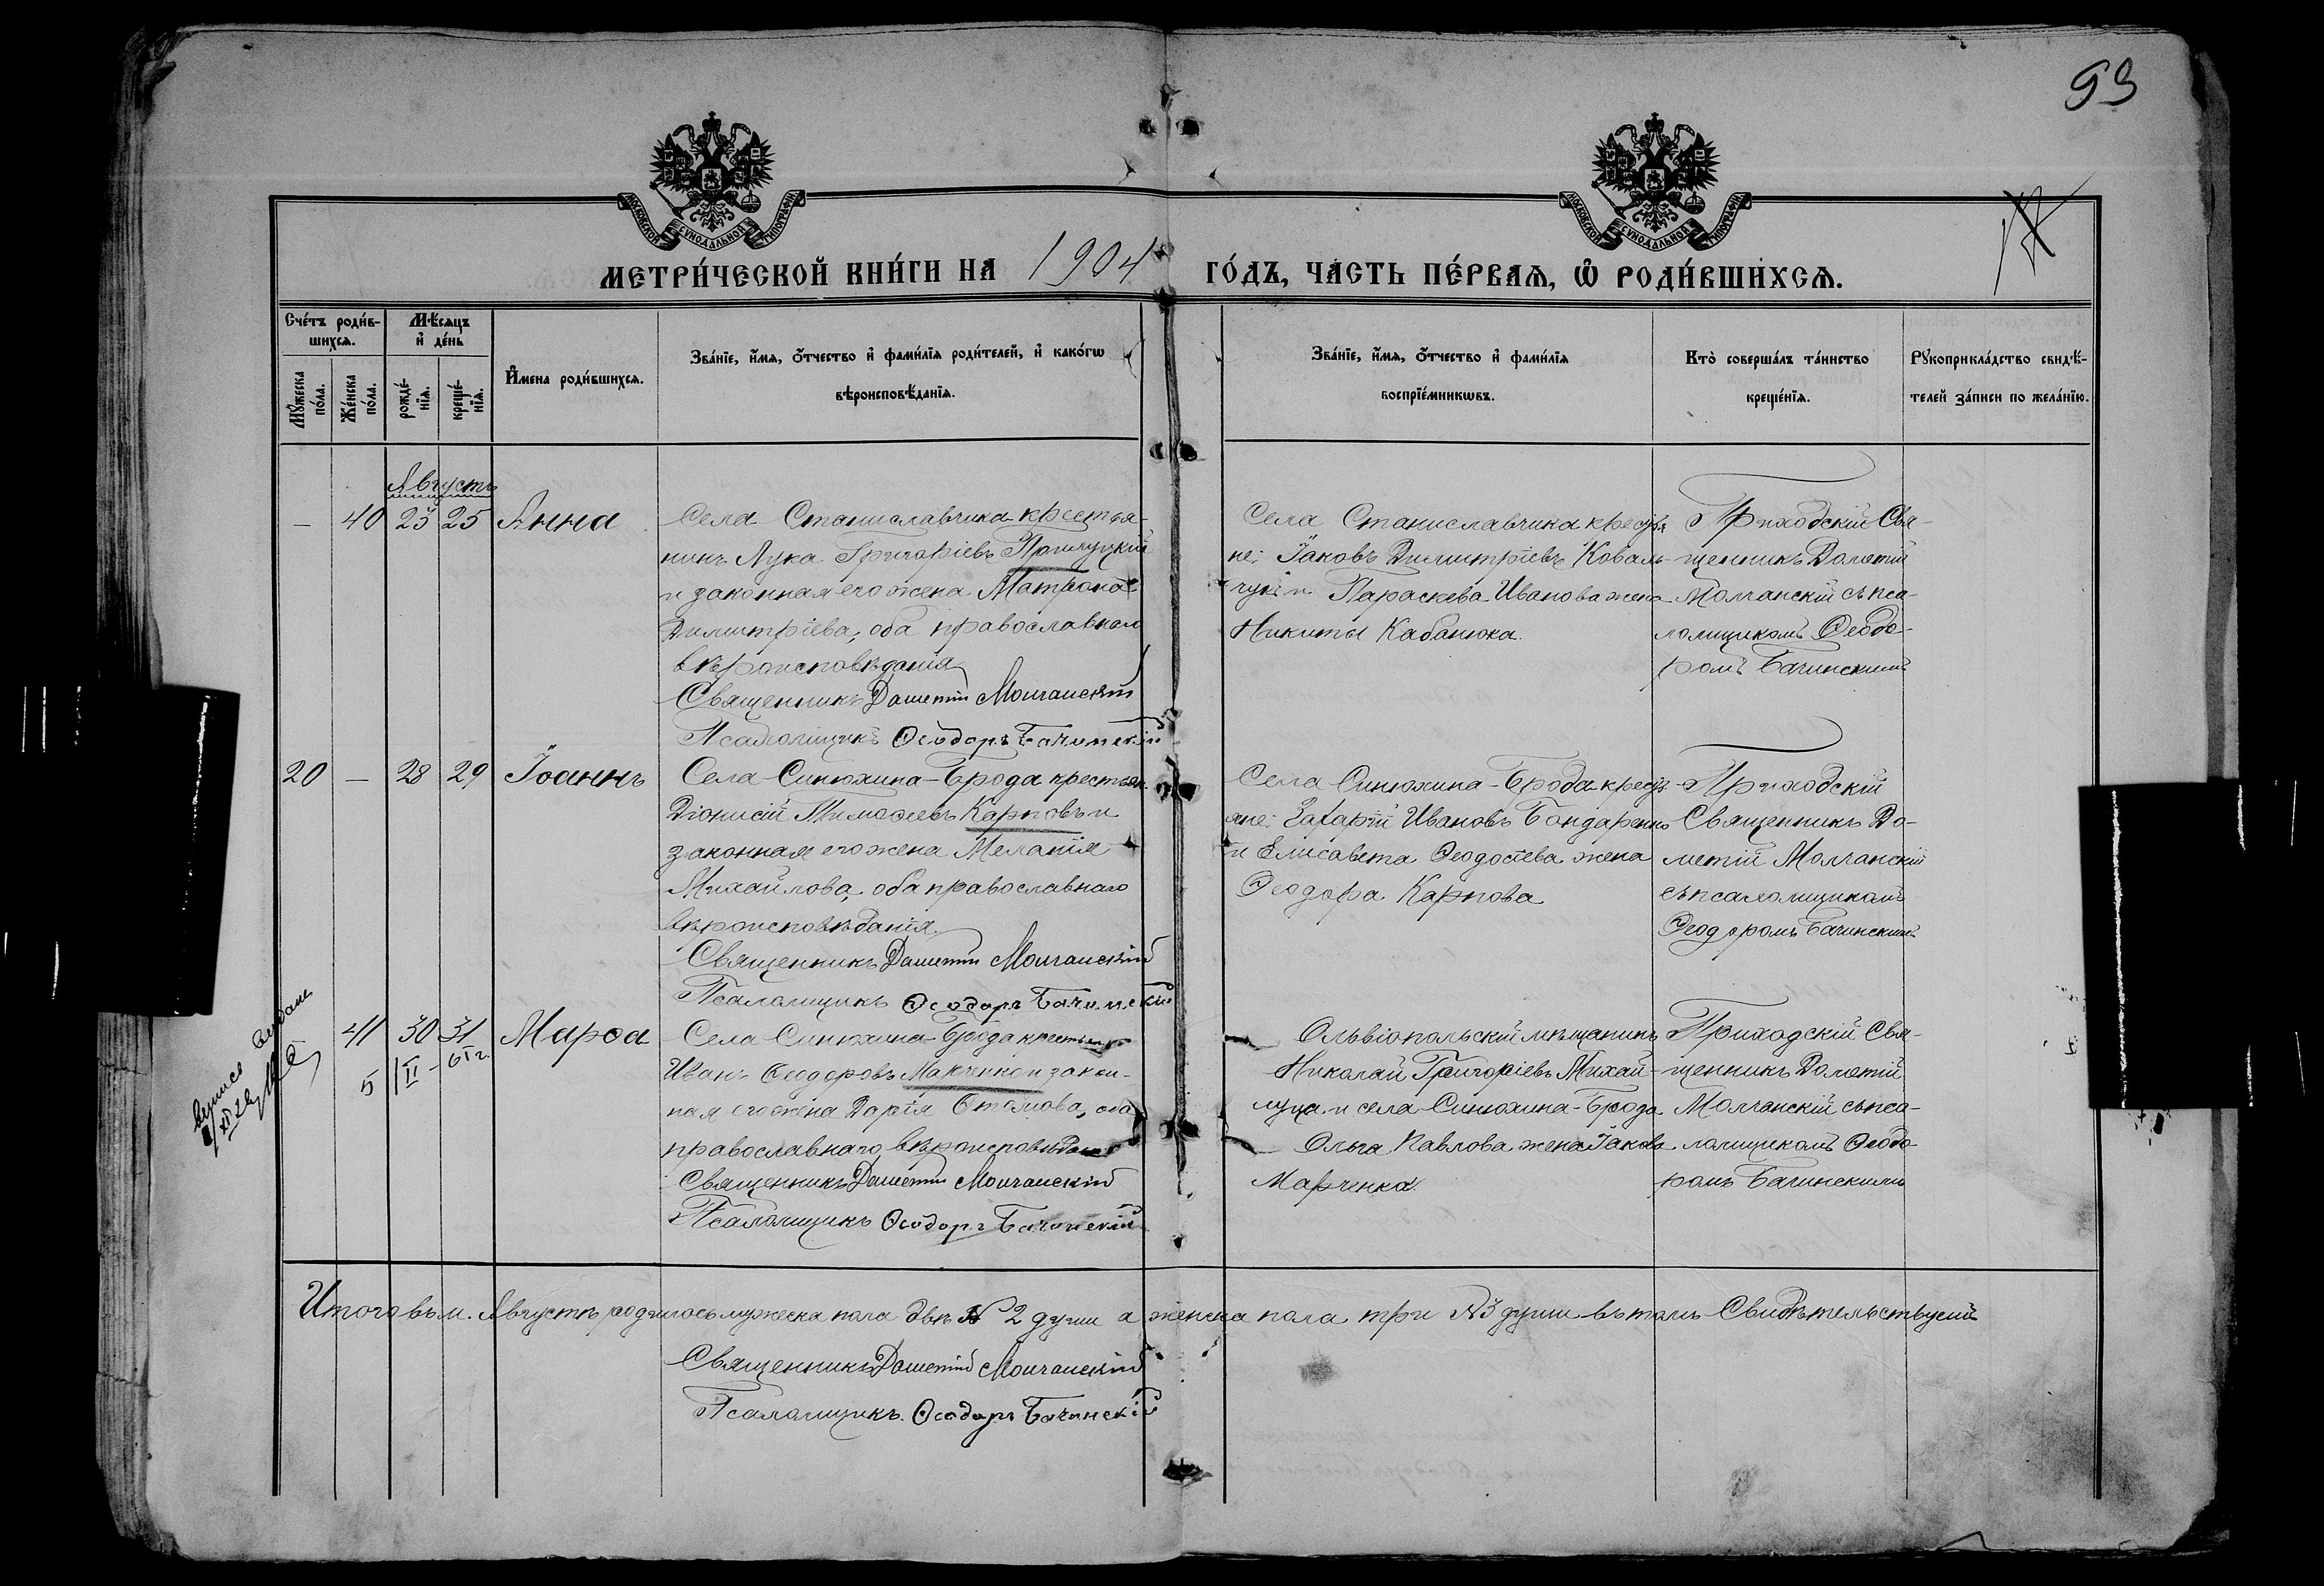 93
МОСКОВСКОЙ СѴНОДАЛЬНОЙ ТИПОГРАФІИ
МОСКОВСКОЙ СѴНОДАЛЬНОЙ ТИПОГРАФІИ
МЕТРИ́ЧЕСКОЙ КНИ́ГИ НА 1904 ГО́ДЪ, ЧА́СТЬ ПЕ́РВАѦ, Ѡ҆ РОДИ́ВШИХСѦ.
Сче́тъ роди́в-
шихсѧ.
Мꙋ́жеска по́ла.
Же́нска по́ла.
Мѣ́сѧцъ
и҆ де́нь
рожде́-
нїѧ.
креще́-
нїѧ.
И҆мена роди́вшихсѧ.
Зва́нїе, и҆́мѧ, ѻ҆́тчество и҆ фами́лїѧ роди́телей, и҆ како́гѡ
вѣроисповѣ́данїѧ.
Зва́нїе, и҆́мѧ, ѻ҆́тчество и҆ фами́лїѧ
воспрїе́мникѡвъ.
Кто̀ соверша́лъ та́инство
креще́нїѧ.
Рꙋкоприкла́дство свидѣ́-
телей за́писи по жела́нїю.
Августъ
— 40 23 25 Анна
Села Станиславчика крестья-
нинъ Лука Григоріевъ
и законная его жена Матрона
Димитріева, оба православнаго
вѣроисповѣданія
Священникъ Дометій Молчанскій
Псаломщикъ Ѳеодоръ Бачинскій
Села Станиславчика крестья
не: Іаковъ Димитріевъ Коваль-
чукъ и Параскева Иванова жена
Никиты Кабанюка.
Приходскій Свя-
щенникъ Дометій
Молчанскій съ пса-
ломщикомъ Ѳеодо-
ромъ Бачинскимъ
20 — 28 29 Іоаннъ
Села Синюхина-Брода крестьян.
Діонисій Тимоѳеевъ Карповъ и
законная его жена Меланія
Михайлова, оба православнаго
вѣроисповѣданія.
Священникъ Дометій Молчанскій
Псаломщикъ Ѳеодоръ Бачинскій
Села Синюхина-Брода крестья-
яне: Захарій Ивановъ Бондаренко
и Елисавета Ѳеодосіева жена
Ѳеодора Карпова
Приходскій
Священникъ До-
метій Молчанскій
съ псаломщикомъ
Ѳеодоромъ Бачинскимъ
41 30 31 Марѳа
5/II - 61 г.
Села Синюхина-Брода крестьянинъ
Иванъ Ѳеодоровъ Марченко и закон-
ная его жена Дарія оба
православнаго вѣроисповѣданія
Священникъ Дометій Молчанскій
Псаломщикъ Ѳеодоръ Бачинскій
Ольвіопольскій мѣщанинъ
Николай Григоріевъ Михай-
луца и села Синюхина-Брода
Ольга Павлова жена Іакова
Марченка.
Приходскій Свя-
щенникъ Дометій
Молчанскій съ пса-
ломщикомъ Ѳеодо-
ромъ Бачинскимъ
Итого въ м. Августѣ родилось мужеска пола двѣ № 2 души а женска пола три № 3 души въ томъ Свидѣтельствуемъ
Священникъ Дометій Молчанскій
Псаломщикъ. Ѳеодоръ Бачинскій